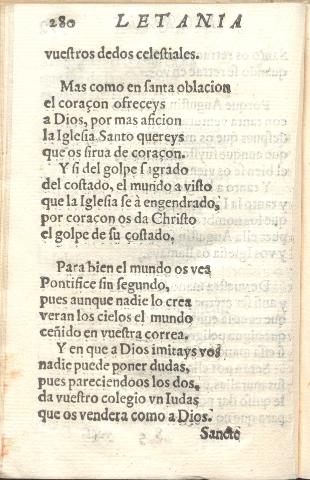 280 LETANIA
vuestros dedos celestiales.
Mas como en santa oblacion
el coraçon ofreceys
a Dios, por mas aficion
la Iglesia Santo quereys
que os sirua de coraçon.
Y si del golpe sagrado
del costado, el mundo a visto
que la Iglesia se à engendrado,
por coraçon os da Christo
el golpe de su costado.
Para bien el mundo os vea
Pontifice sin segundo,
pues aunque nadie lo crea
veran los cielos el mundo
ceñido en vuestra correa.
Y en que a Dios imitays vos
nadie puede poner dudas,
pues pareciendoos los dos,
da vuestro colegio vn Iudas
que os vendera como a Dios.
Sancte